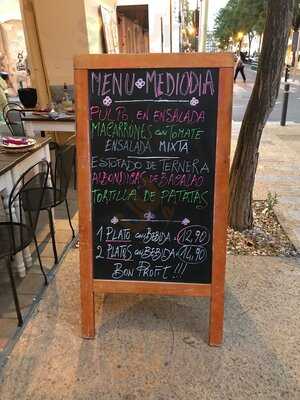 MENU MEDIODIA
PULPO EN ENSALADA
MACARRONES CON TOMATE
ENSALADA MIXTA
ESTOFADO DE TERNERA
ALBONDIGAS DE BACALAO
TORTILLA DE PATATAS
1 PLATO CON BEBIDA 12,90
2 PLATOS CON BEBIDA 14,90
BON PROFIT!!!